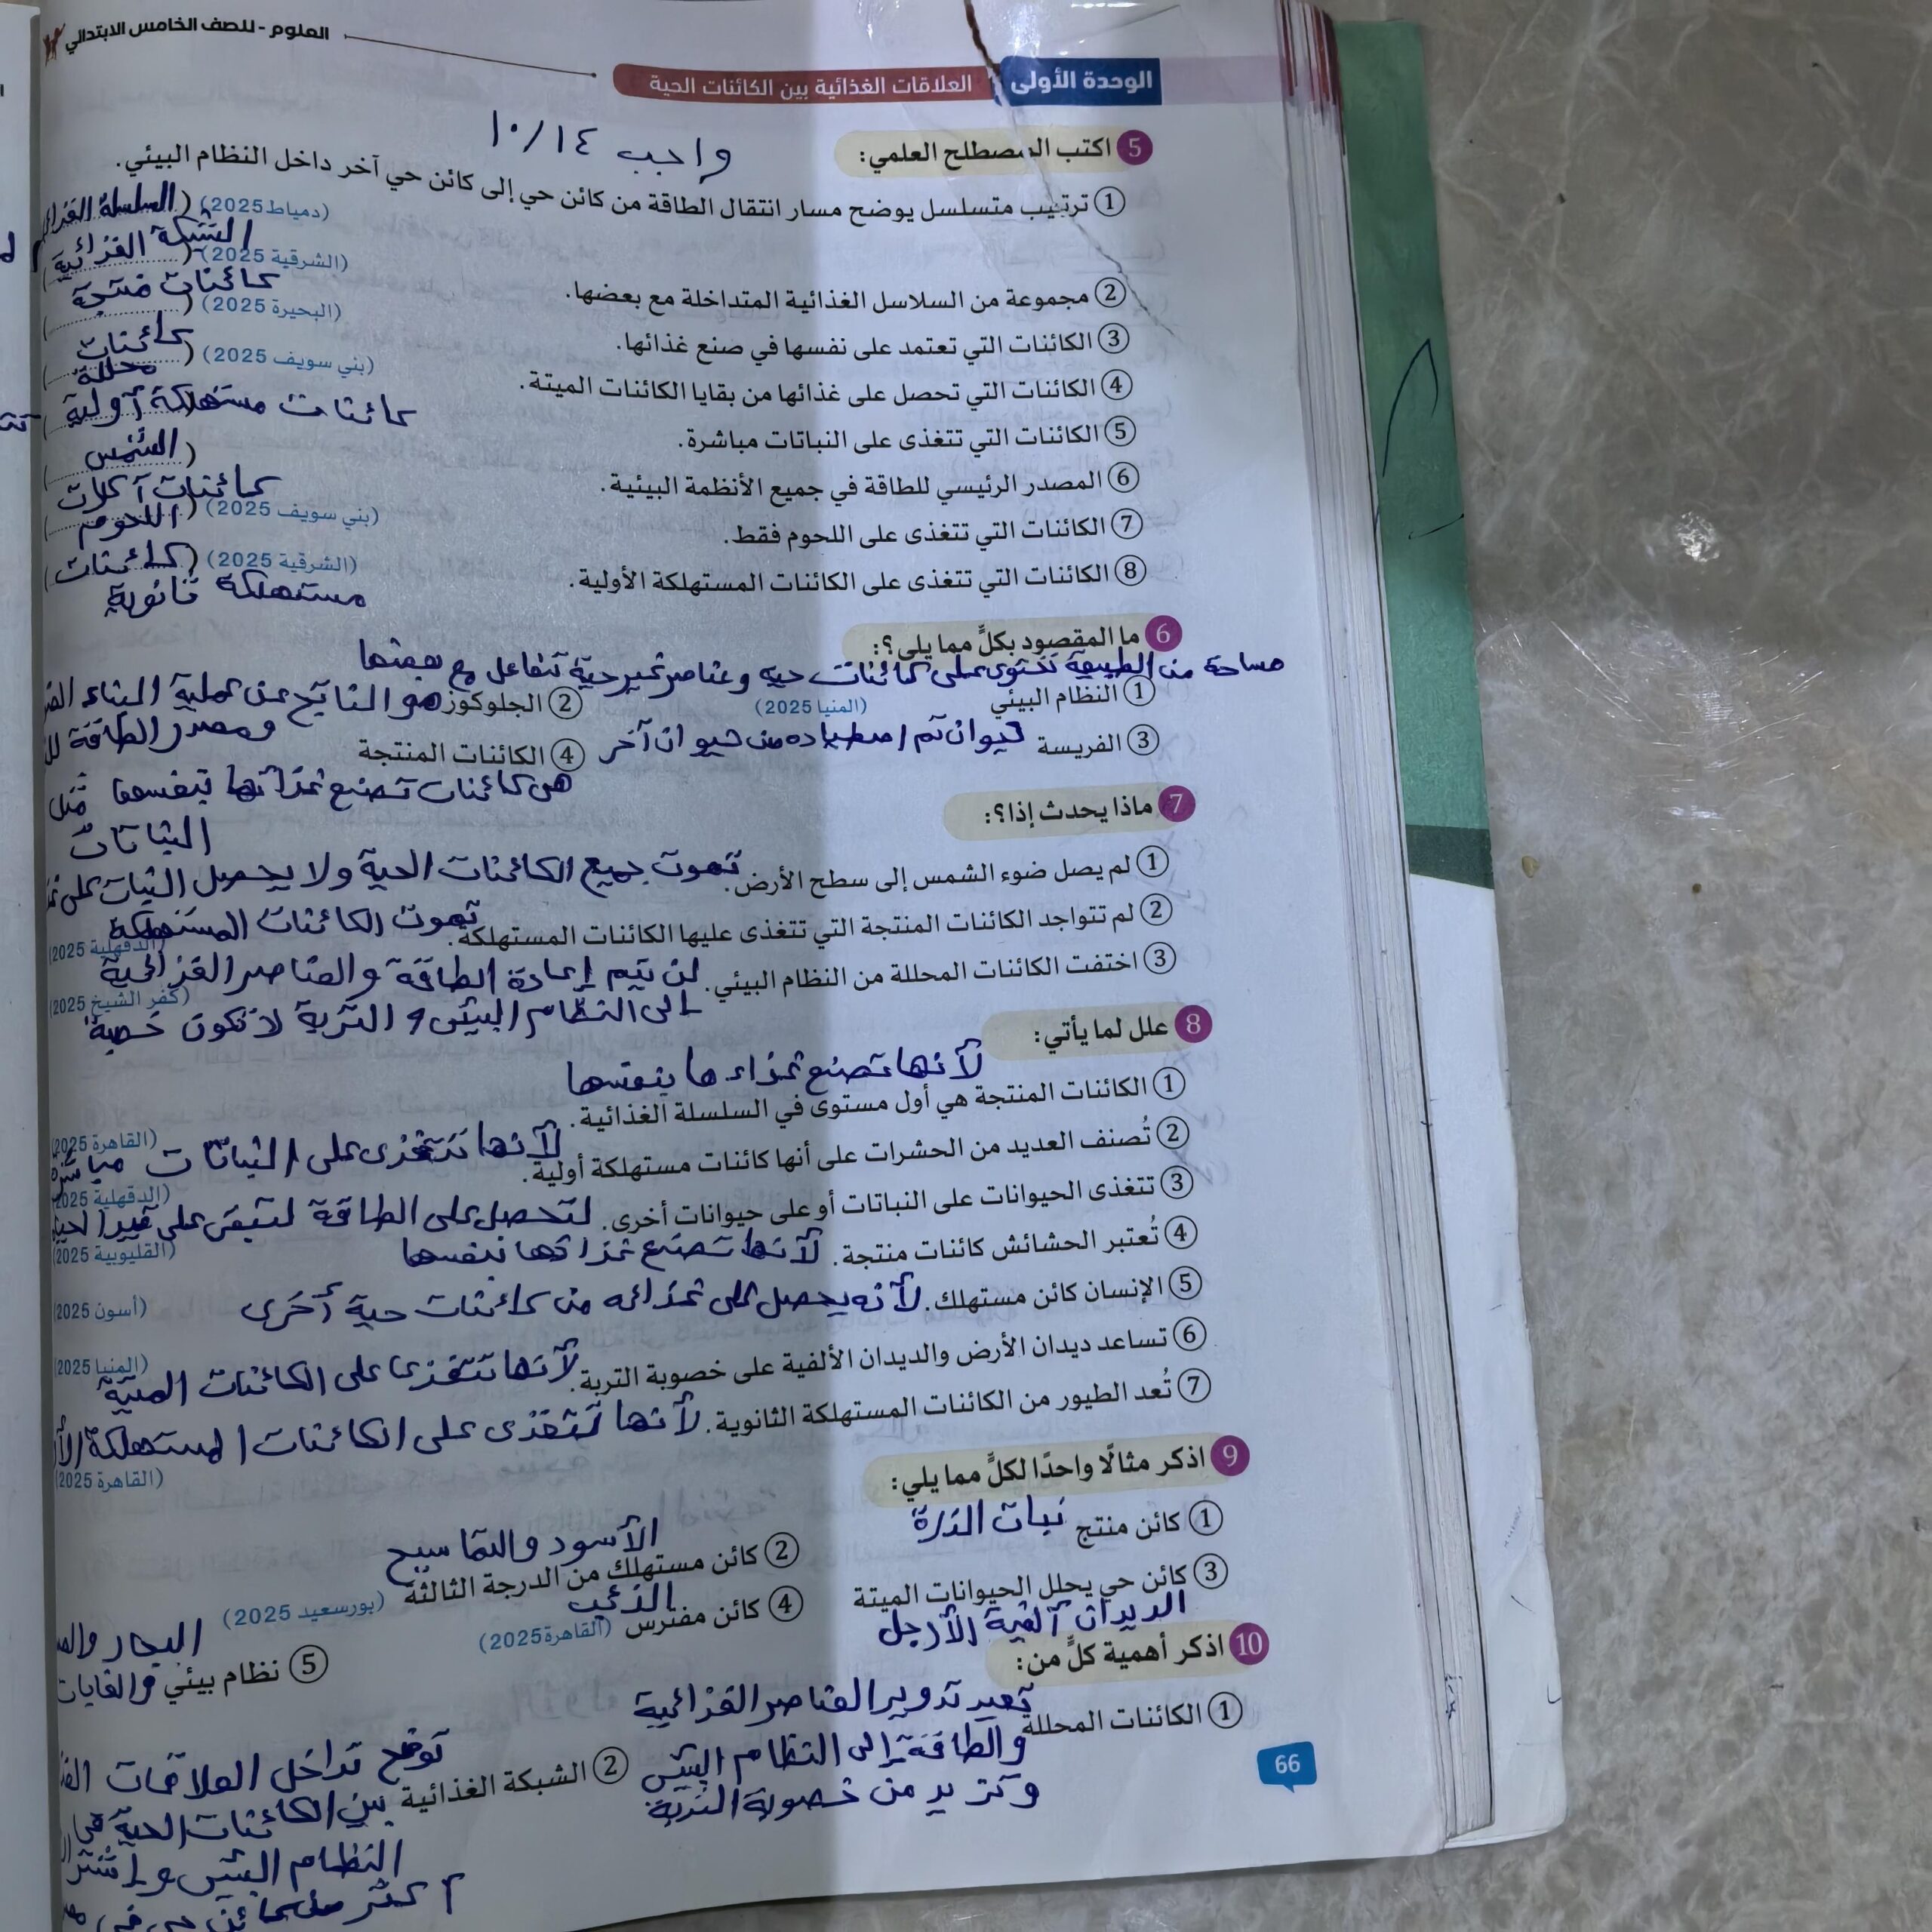 العلوم - للصف الخامس الابتدائي
الوحدة الأولى العلاقات الغذائية بين الكائنات الحية
واجب ١٠/١٤
5 اكتب المصطلح العلمي:
1 ترتيب متسلسل يوضح مسار انتقال الطاقة من كائن حي إلى كائن حي آخر داخل النظام البيئي.
(دمياط 2025) (السلسلة الغذائ
2 مجموعة من السلاسل الغذائية المتداخلة مع بعضها. (الشرقية 2025) (الشبكة الغذائية)
3 الكائنات التي تعتمد على نفسها في صنع غذائها. (البحيرة 2025) (كائنات منتجة)
4 الكائنات التي تحصل على غذائها من بقايا الكائنات الميتة. (بني سويف 2025) (كائنات محللة)
5 الكائنات التي تتغذى على النباتات مباشرة. كائنات مستهلكة أولية
6 المصدر الرئيسي للطاقة في جميع الأنظمة البيئية. (الشمس)
7 الكائنات التي تتغذى على اللحوم فقط. (بني سويف 2025) (كائنات آكلات اللحوم)
8 الكائنات التي تتغذى على الكائنات المستهلكة الأولية. (الشرقية 2025) (كائنات مستهلكة ثانوية)
6 ما المقصود بكلٍّ مما يلي؟:
مساحة من الطبيعة تحتوى على كائنات حيه وعناصر غير حية تتفاعل مع بعضها
1 النظام البيئي (المنيا 2025)
2 الجلوكوز هو الناتج عن عملية البناء
ومصدر الطاقة
3 الفريسة حيوان تم اصطياده من حيوان آخر
4 الكائنات المنتجة
هى كائنات تصنع غذائها بنفسها مثل
النباتات
7 ماذا يحدث إذا؟:
1 لم يصل ضوء الشمس إلى سطح الأرض. تموت جميع الكائنات الحية ولا يحصل النبات على
2 لم تتواجد الكائنات المنتجة التي تتغذى عليها الكائنات المستهلكة. تموت الكائنات المستهلكة (الدقهلية 2025)
3 اختفت الكائنات المحللة من النظام البيئي. لن يتم إعادة الطاقة والعناصر الغذائية (كفر الشيخ 2025)
إلى النظام البيئى و التربة لا تكون خصبة
8 علل لما يأتي:
لأنها تصنع غذاءها بنفسها
1 الكائنات المنتجة هي أول مستوى في السلسلة الغذائية. (القاهرة 2025)
2 تُصنف العديد من الحشرات على أنها كائنات مستهلكة أولية. لأنها تتغذى على النباتات مباشرة (الدقهلية 2025)
3 تتغذى الحيوانات على النباتات أو على حيوانات أخرى. لتحصل على الطاقة لتبقى على قيد الحيا (القليوبية 2025)
4 تُعتبر الحشائش كائنات منتجة. لأنها تصنع غذائها بنفسها
5 الإنسان كائن مستهلك. لأنه يحصل على غذائه من كائنات حية أخرى (أسون 2025)
6 تساعد ديدان الأرض والديدان الألفية على خصوبة التربة. لأنها تتغذى على الكائنات الميتة (المنيا 2025)
7 تُعد الطيور من الكائنات المستهلكة الثانوية. لأنها تتغذى على الكائنات المستهلكة الأ
(القاهرة 2025)
9 اذكر مثالًا واحدًا لكلٍّ مما يلي:
1 كائن منتج نبات الذرة
2 كائن مستهلك من الدرجة الثالثة (بورسعيد 2025) الأسود والتماسيح
3 كائن حي يحلل الحيوانات الميتة
الديدان ألفية الأرجل
4 كائن مفترس (القاهرة 2025) الذئب
5 نظام بيئي البحار
والغابات
10 اذكر أهمية كلٍّ من:
1 الكائنات المحللة تعيد تدوير العناصر الغذائية
والطاقة إلى النظام البيئى
وتزيد من خصوبة التربة
2 الشبكة الغذائية توضح تداخل العلاقات
بين الكائنات الحية فى
النظام البيئى
أكثر من كائن حى فى
66